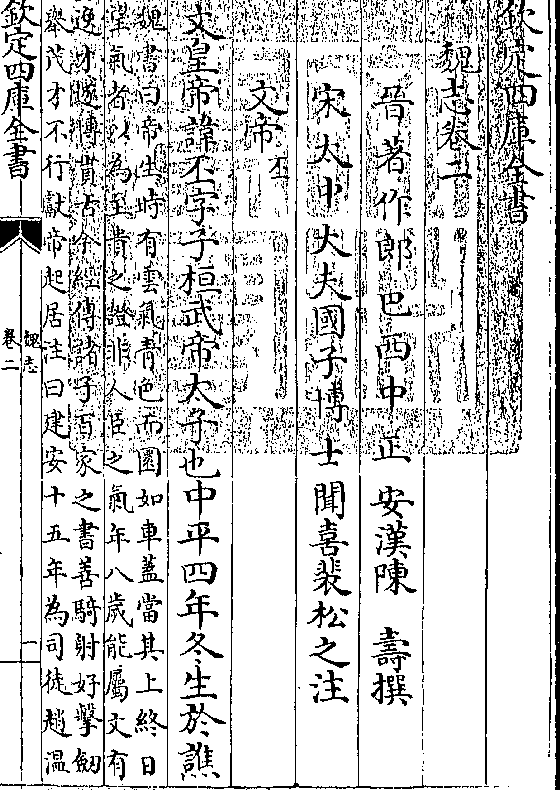 欽定四庫全書
魏志卷二
晉著作郎巴西中正安漢陳壽撰
宋太中大夫國子博士聞喜裴松之注
文帝丕
文皇帝諱丕字子桓武帝太子也中平四年冬生於譙
魏書曰帝生時有雲氣青色而圜如車蓋當其上終日
望氣者以為至貴之證非人臣之氣年八歲能屬文有
逸才遂博貫古今經傳諸子百家之書善騎射好擊劒
舉茂才不行獻帝起居注曰建安十五年為司徒趙溫
欽定四庫全書
魏志
卷二
一